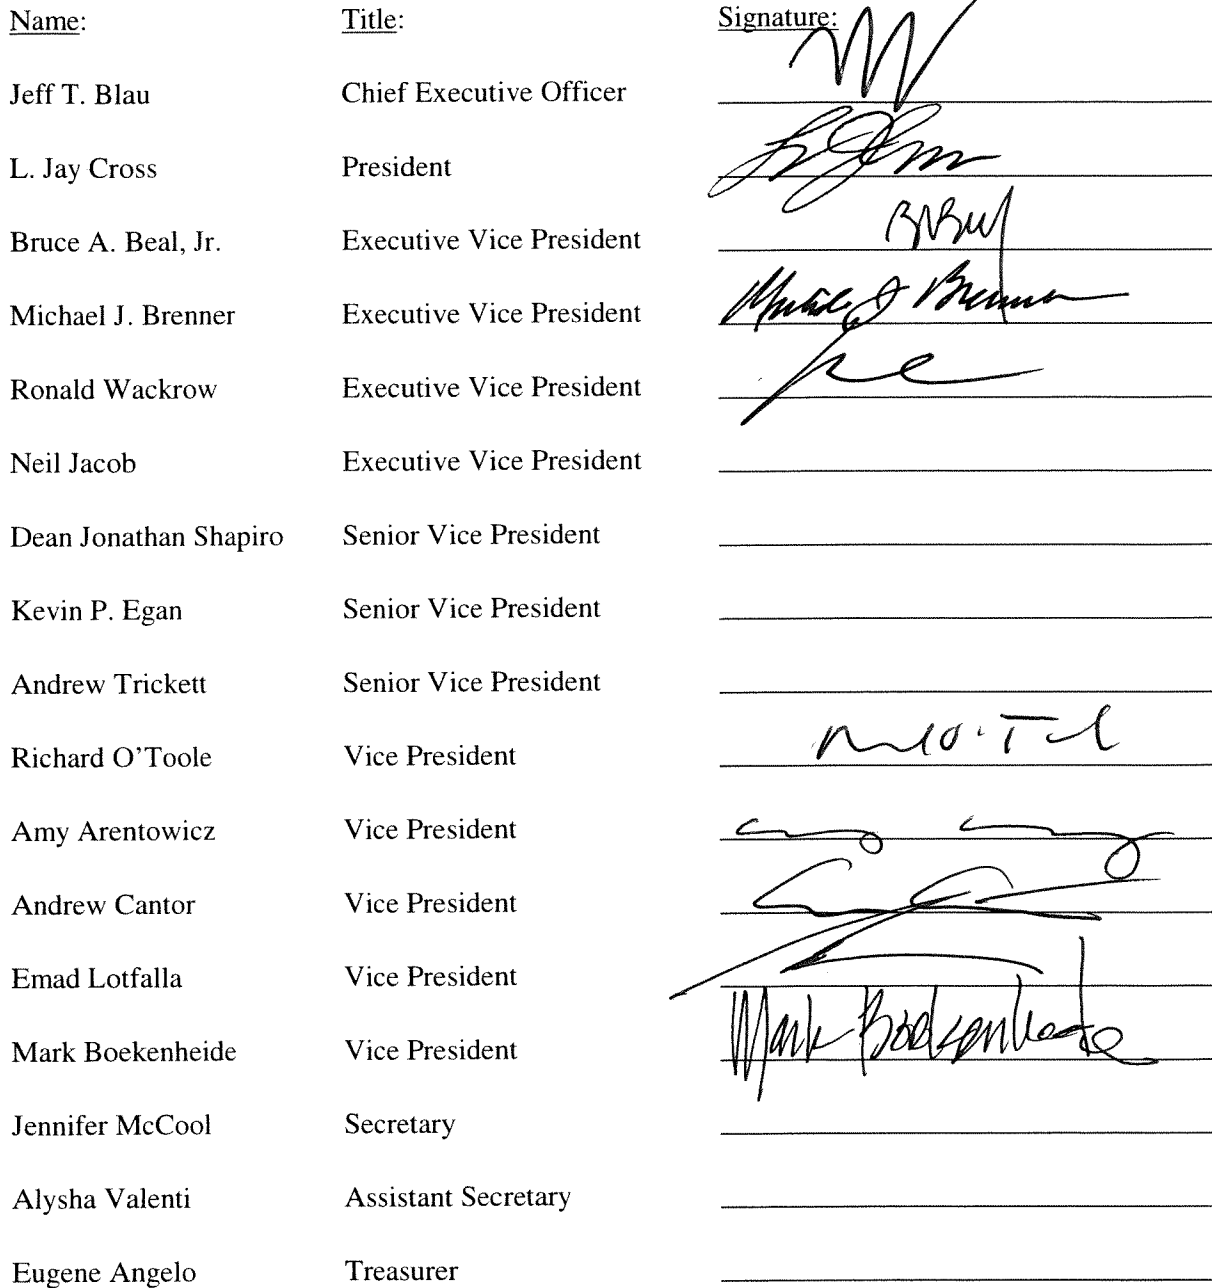 Name: Title: Signature:
Jeff T. Blau Chief Executive Officer
L. Jay Cross President
Bruce A. Beal, Jr. Executive Vice President
Michael J. Brenner Executive Vice President Michael J Brenner
Ronald Wackrow Executive Vice President
Neil Jacob Executive Vice President
Dean Jonathan Shapiro Senior Vice President
Kevin P. Egan Senior Vice President
Andrew Trickett Senior Vice President
Richard O'Toole Vice President
Amy Arentowicz Vice President
Andrew Cantor Vice President
Emad Lotfalla Vice President
Mark Boekenheide Vice President Mark Boekenheide
Jennifer McCool Secretary
Alysha Valenti Assistant Secretary
Eugene Angelo Treasurer